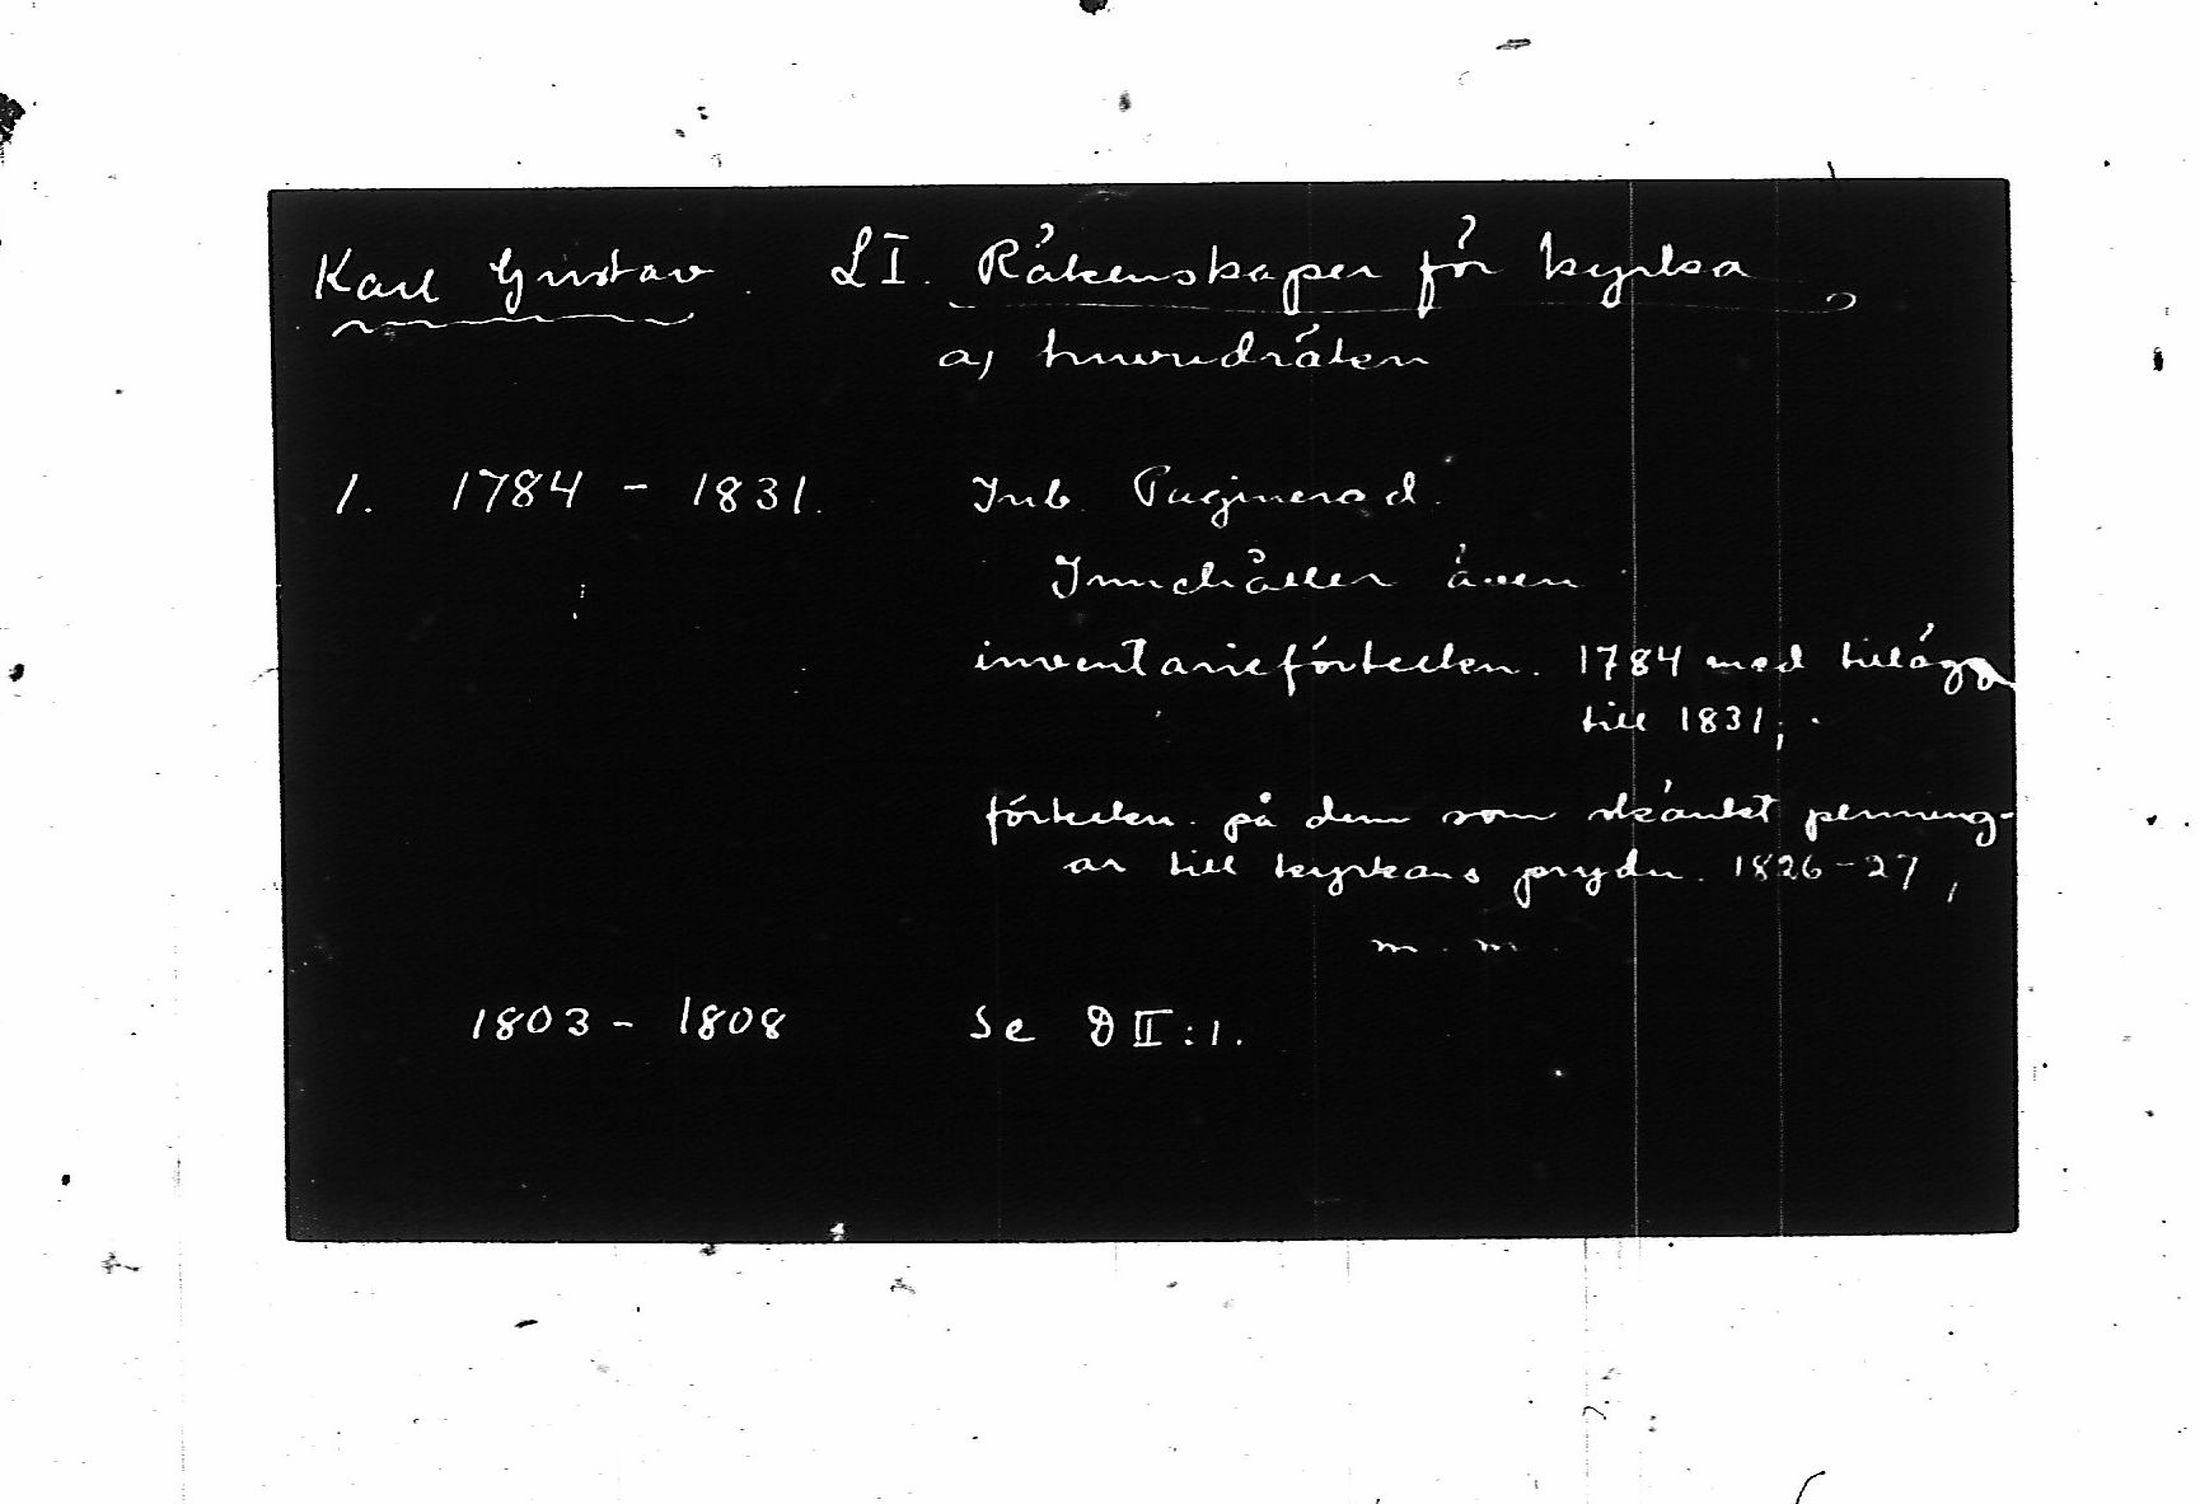 Karl Gustav. L I. Räkenskaper för kyrka
a) huvudräken
1. 1784 - 1831. Inb. Paginerad.
Innehåller även
inventarieförteckn. 1784 med tillägg
till 1831;
förteckn. på dem som skänkt penning-
ar till kyrkans prydn. 1826-27,
m. m.
1803 - 1808 Se D II:1.